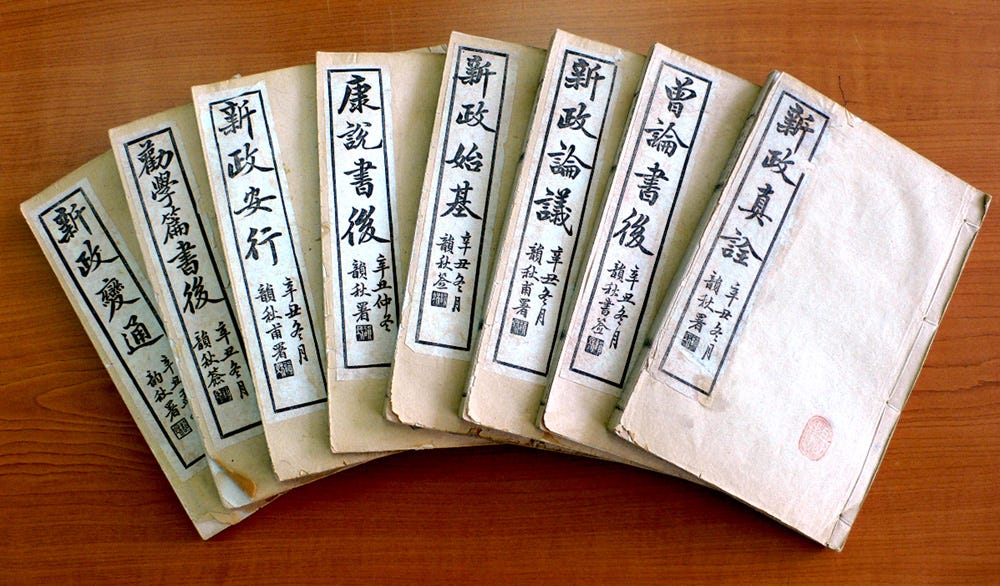 新政真詮
辛丑冬月
韻秋署
曾論書後
辛丑冬月
韻秋書簽
新政論議
辛丑冬月
韻秋甫署
新政始基
辛丑冬月
韻秋簽
康說書後
辛丑仲冬
韻秋署
新政安行
辛丑冬月
韻秋甫署
勸學篇書後
辛丑冬月
韻秋簽
新政變通
辛丑
韵秋署